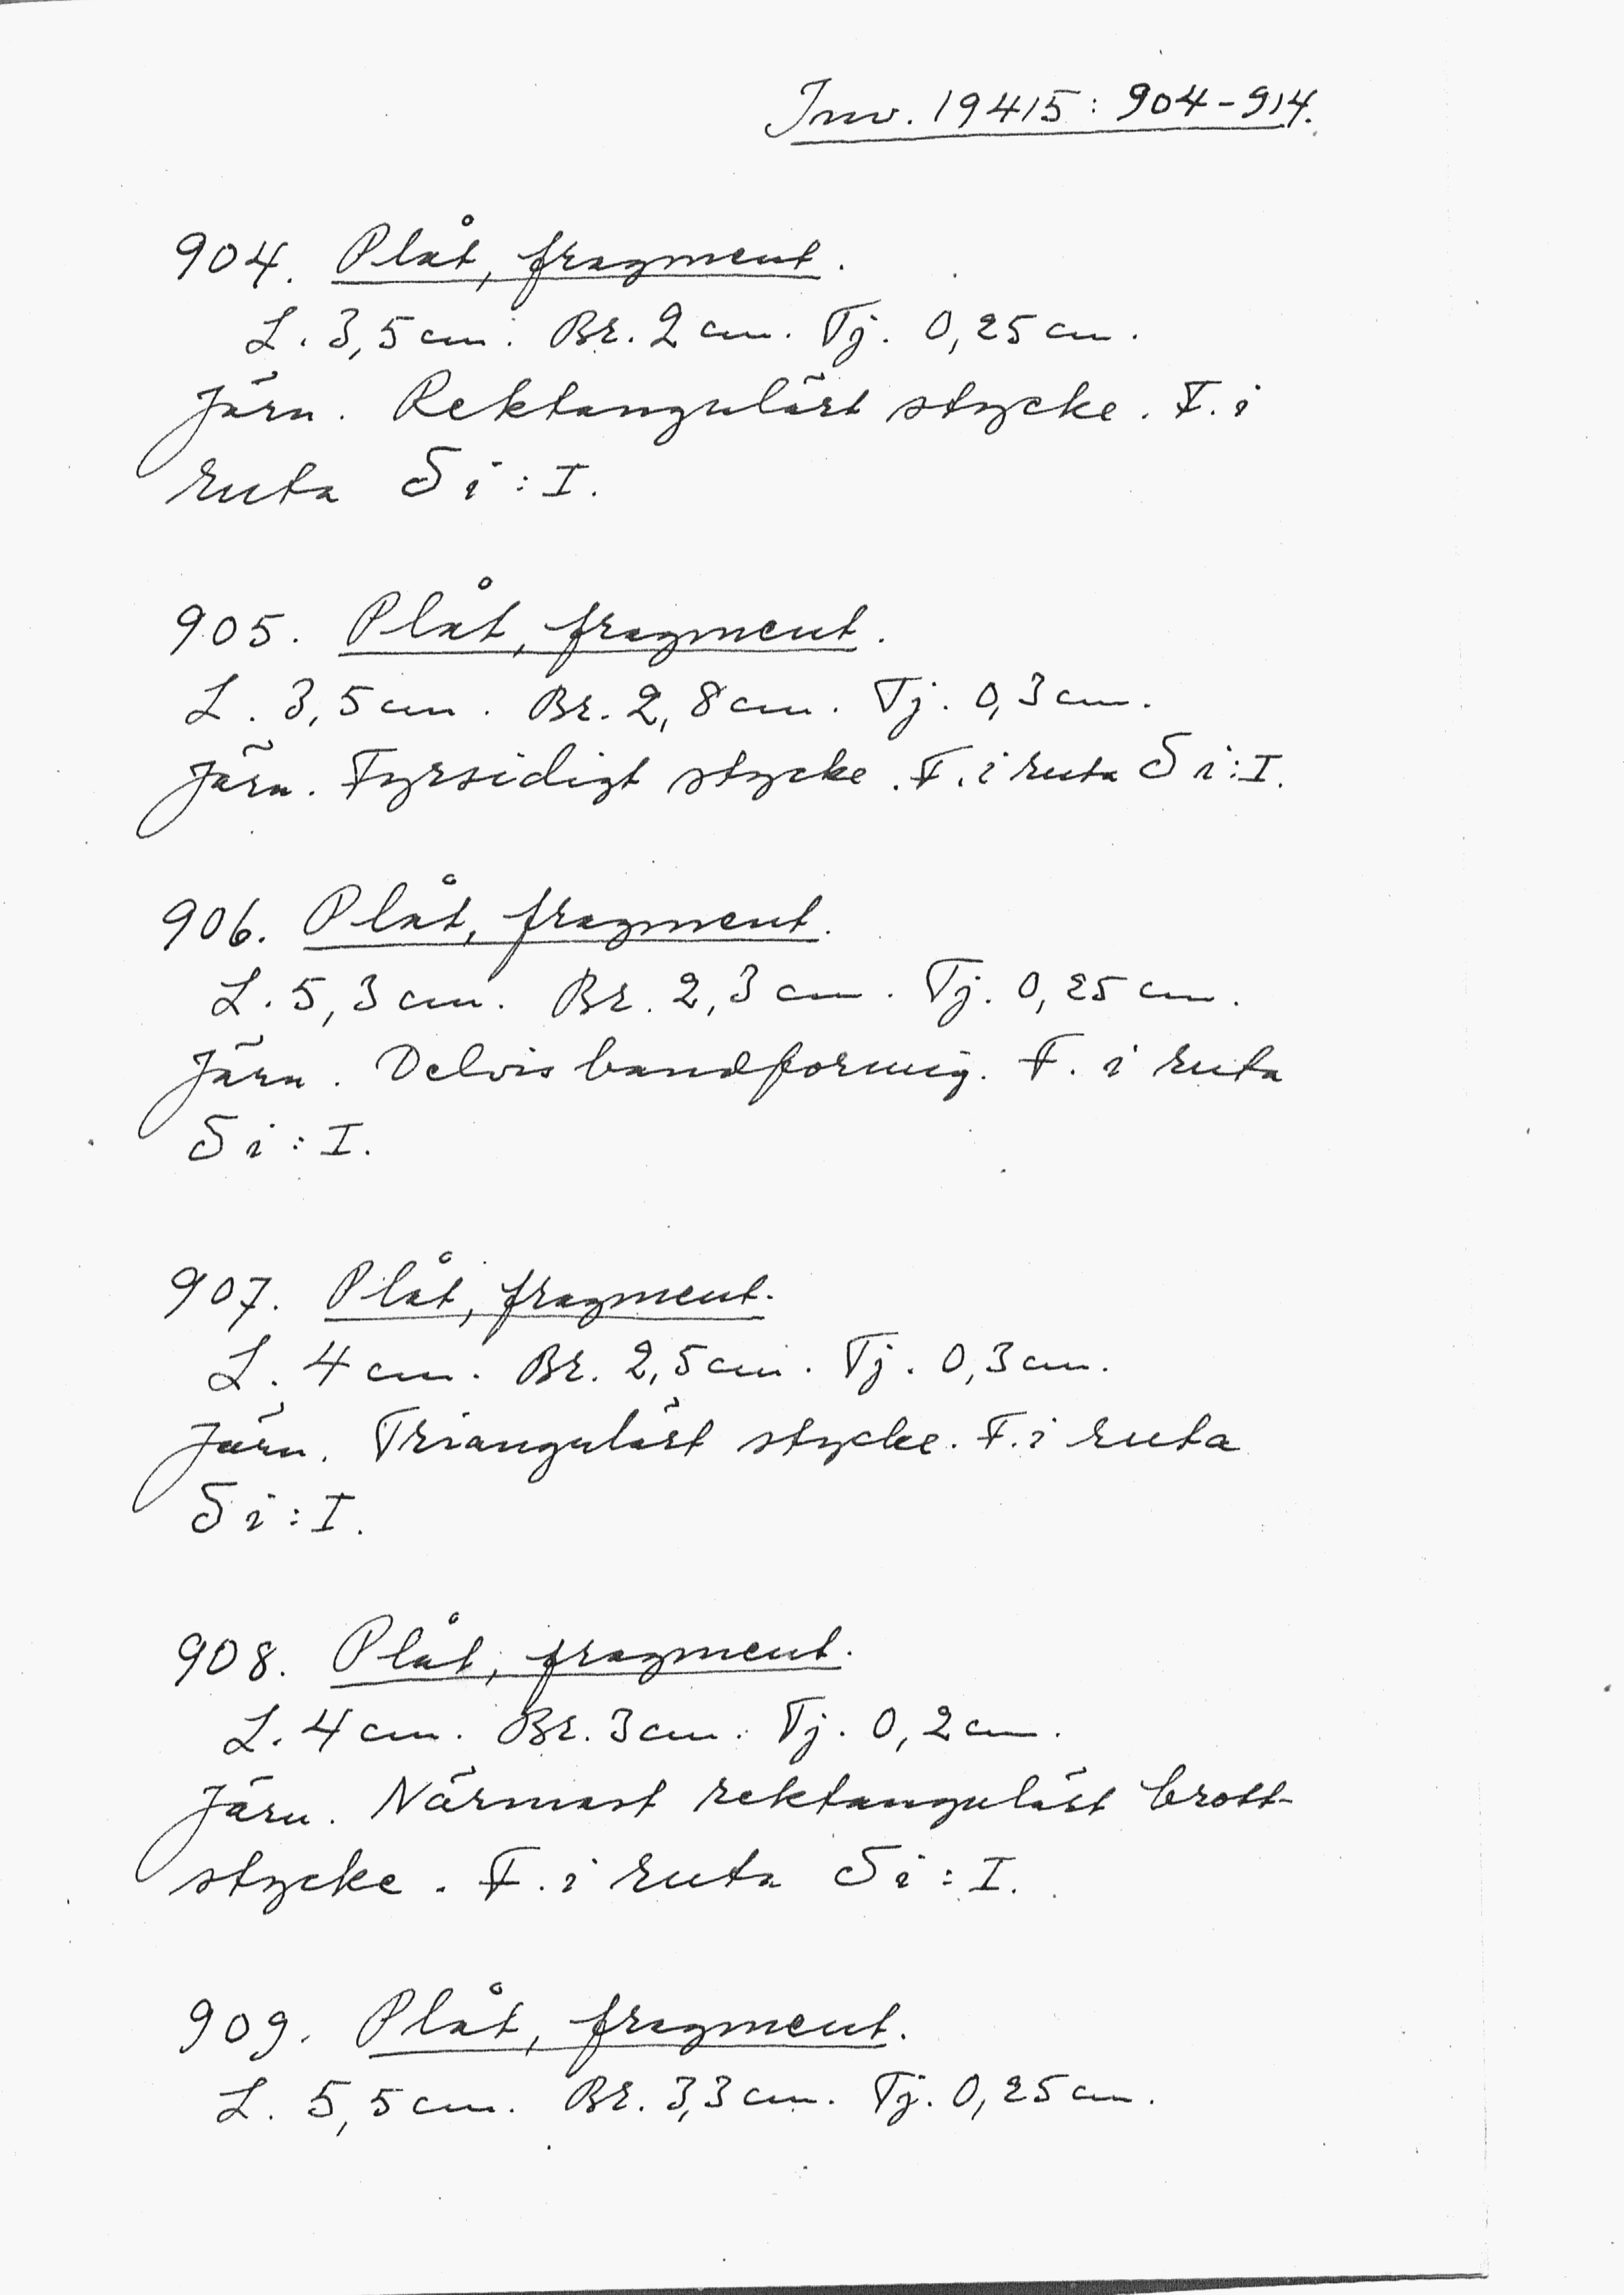 Inv. 19415: 904-914.
904. Plåt, fragment.
L. 3,5 cm. Br. 2 cm. Tj. 0,25 cm.
Järn. Rektangulärt stycke. F. i
ruta S i : I.
905. Plåt, fragment.
L. 3,5 cm. Br. 2,8 cm. Tj. 0,3 cm.
Järn. Fyrsidigt stycke. F. i ruta S i : I.
906. Plåt, fragment.
L. 5,3 cm. Br. 2,3 cm. Tj. 0,25 cm.
Järn. Delvis bandformig. F. i ruta
S i : I.
907. Plåt, fragment.
L. 4 cm. Br. 2,5 cm. Tj. 0,3 cm.
Järn. Triangulärt stycke. F. i ruta
S i : I.
908. Plåt, fragment.
L. 4 cm. Br. 3 cm. Tj. 0,2 cm.
Järn. Närmast rektangulärt brott-
stycke. F. i ruta S i : I.
909. Plåt, fragment.
L. 5,5 cm. Br. 3,3 cm. Tj. 0,25 cm.